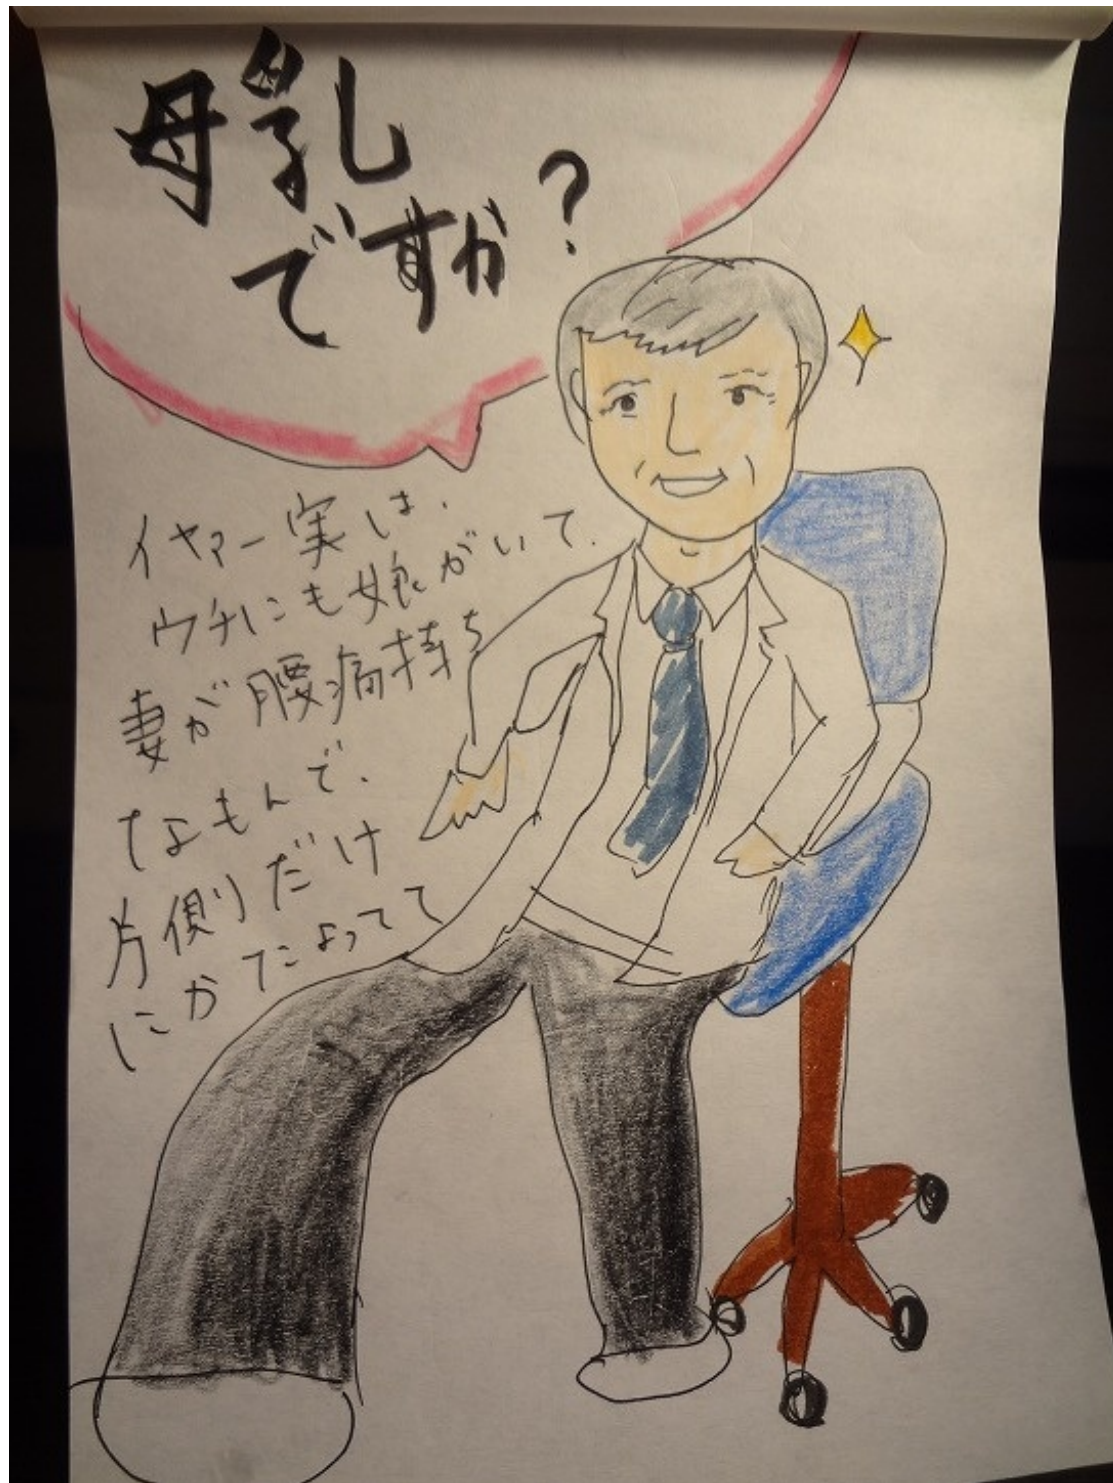 母乳
ですか?
イヤァー実は、
ウチにも娘がいて、
妻が腰痛持ち
なもんで、
片側だけ
にかたよってて